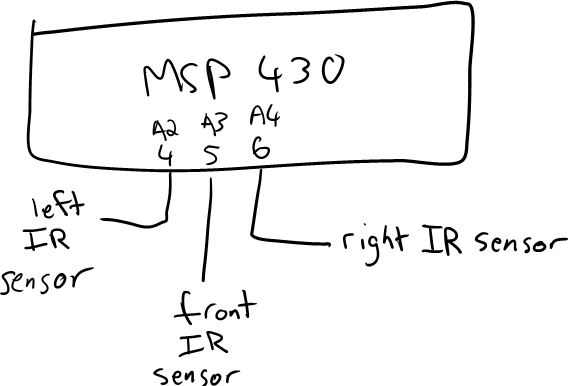 MSP 430
A2 A3 A4
4 5 6
left
IR
sensor
front
IR
sensor
right IR sensor